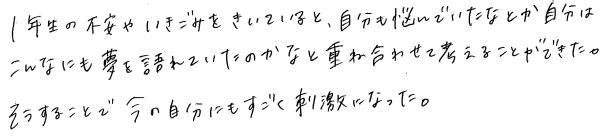 1年生の不安やいきごみをきいていると、自分も悩んでいたなとか自分は
こんなにも夢を語れていたのかなと重ね合わせて考えることができた。
そうすることで今の自分にもすごく刺激になった。